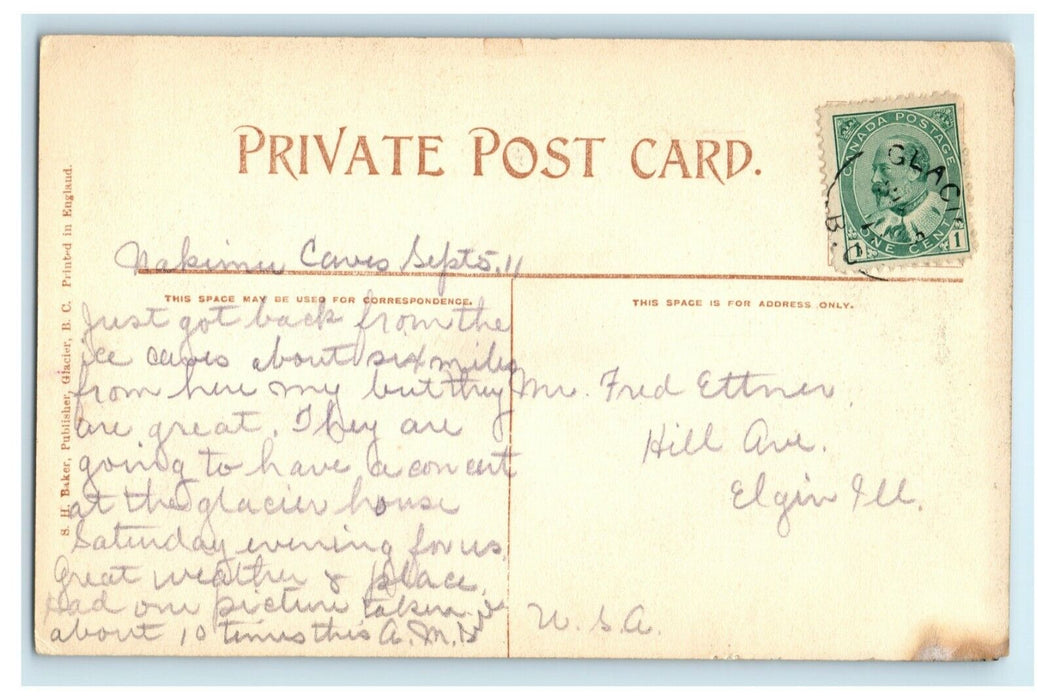 PRIVATE POST CARD.
CANADA POSTAGE
1 ONE CENT 1
GLACI
B.C
Nakimu Caves Sept 5, 11
THIS SPACE MAY BE USED FOR CORRESPONDENCE.
THIS SPACE IS FOR ADDRESS ONLY.
Just got back from the
ice caves about six miles
from here my but they
are great. They are
going to have a concert
at the glacier house
Saturday evening for us.
Great weather & place.
Had our picture taken
about 10 times this A.M.
Mr. Fred Ettner,
Hill Ave.
Elgin Ill.
U.S.A.
S. H. Baker, Publisher, Glacier, B. C. Printed in England.